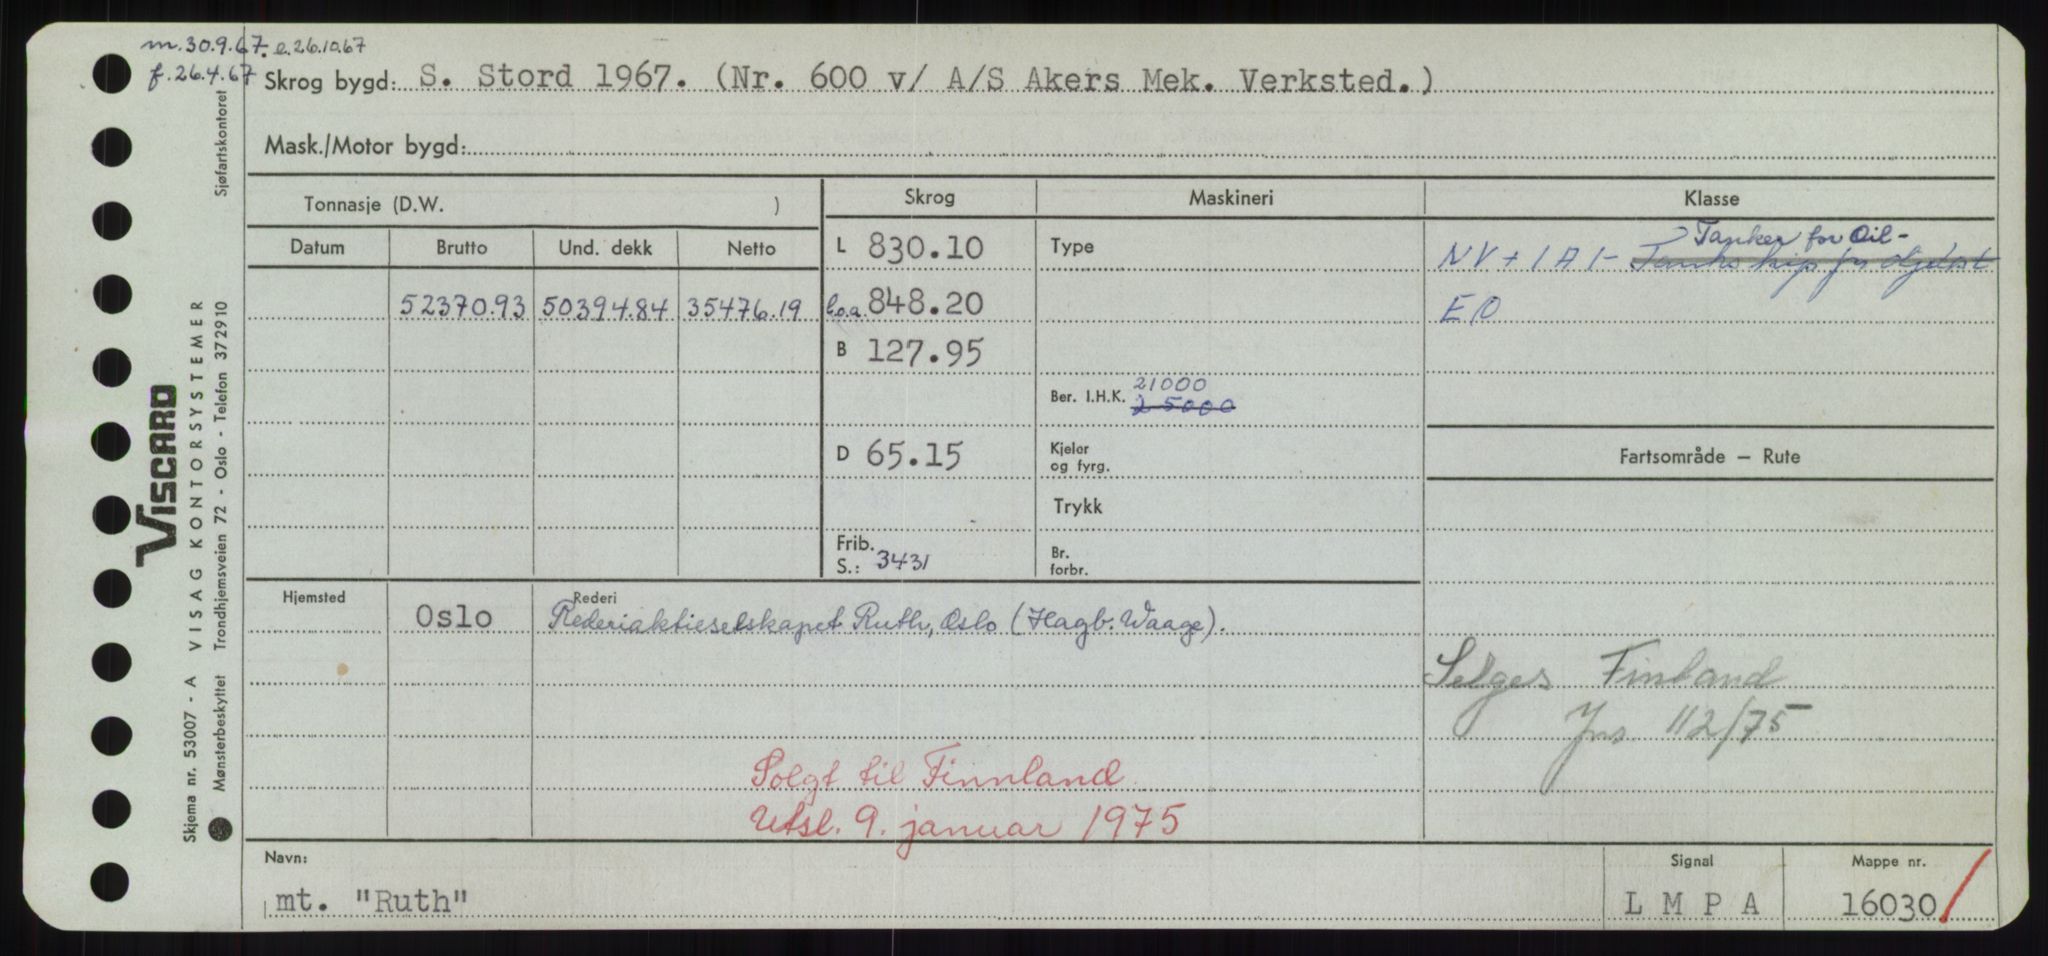 m. 30.9.67. e. 26.10.67
f. 26.4.67
Skrog bygd: S. Stord 1967. (Nr. 600 v/ A/S Akers Mek. Verksted.)
Mask./Motor bygd:
Tonnasje (D.W. )
Skrog
Maskineri
Klasse
Datum
Brutto
Und. dekk
Netto
L 830.10
Type
Tanker for Oil-
NV + 1 A 1 - Tankskip for
52370.93
50394.84
35476.19
l.o.a. 848.20
E 0
B 127.95
21000
Ber. I.H.K. 25000
D 65.15
Kjeler
og fyrg.
Fartsområde – Rute
Trykk
Frib.
S.: 3431
Br.
forbr.
Hjemsted
Oslo
Rederi
Rederiaktieselskapet Ruth, Oslo (Hagb. Waage).
Selges Finland
112/75
Solgt til Finnland
Utsl. 9. januar 1975
Navn:
mt. "Ruth"
Signal
L M P A
Mappe nr.
16030
VISCARD
Skjema nr. 53007 - A VISAG KONTORSYSTEMER
Mønsterbeskyttet Trondhjemsveien 72 - Oslo - Telefon 372910
Sjøfartskontoret